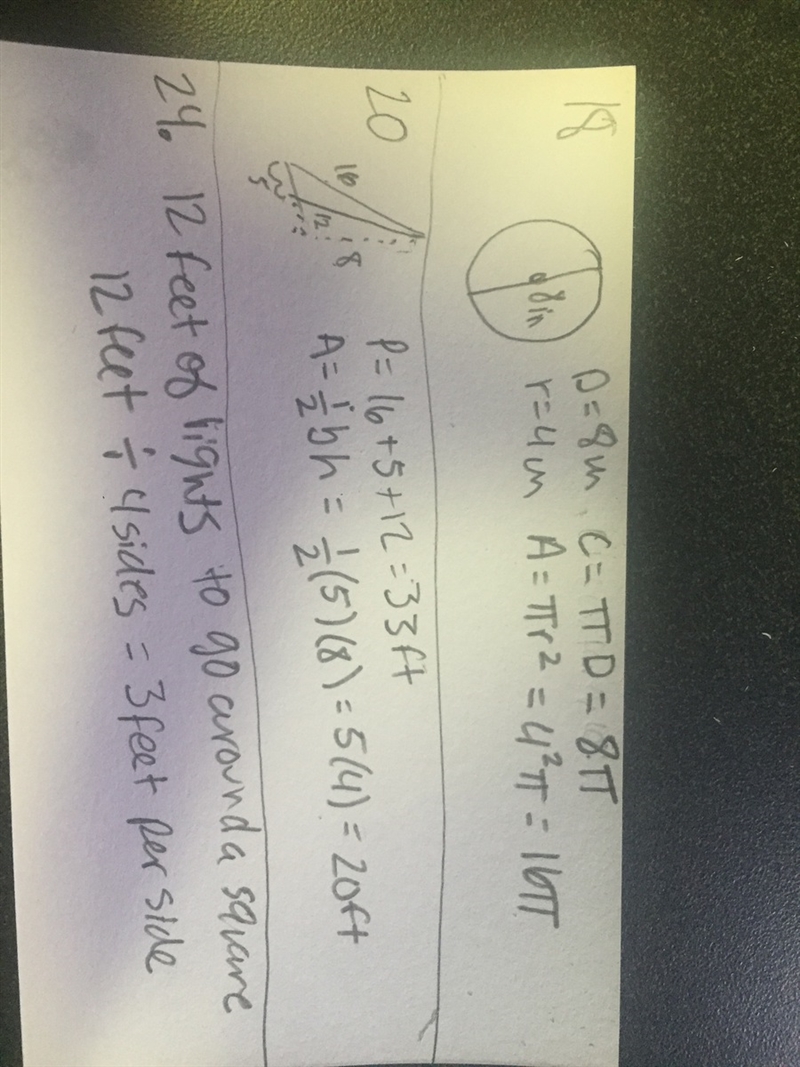 18
8in
D=8in C=πD=8π
r=4in A=πr²=4²π=16π
20
16
12
8
5
P=16+5+12=33ft
A=½bh=½(5)(8)=5(4)=20ft
24. 12 feet of lights to go around a square
12 feet ÷ 4 sides = 3 feet per side